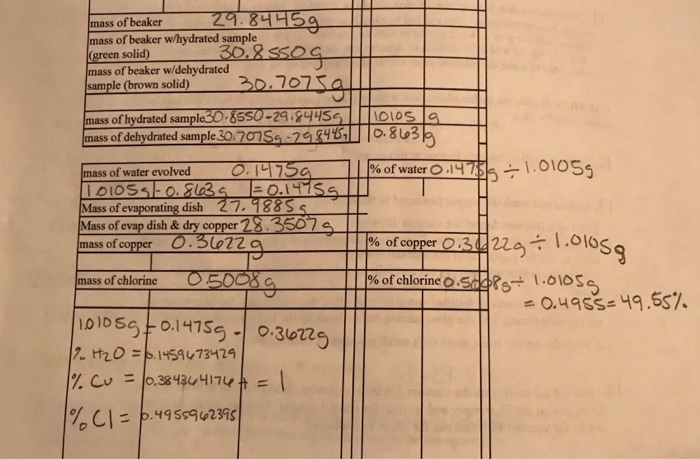 mass of beaker 29.8445g
mass of beaker w/hydrated sample
(green solid) 30.8550g
mass of beaker w/dehydrated
sample (brown solid) 30.7075g
mass of hydrated sample 30.8550-29.8445g 1.0105 g
mass of dehydrated sample 30.7075g-29.8445g 0.863g
mass of water evolved 0.1475g % of water 0.1475g ÷ 1.0105g
1.0105g - 0.863g = 0.1475g
Mass of evaporating dish 27.9885g
Mass of evap dish & dry copper 28.3507g
mass of copper 0.3622g % of copper 0.3622g ÷ 1.0105g
mass of chlorine 0.5008g % of chlorine 0.5008g ÷ 1.0105g
= 0.4955 = 49.55%
1.0105g - 0.1475g - 0.3622g
% H2O = 0.1459673429
% Cu = 0.3843641764 = 1
% Cl = 0.4955962395